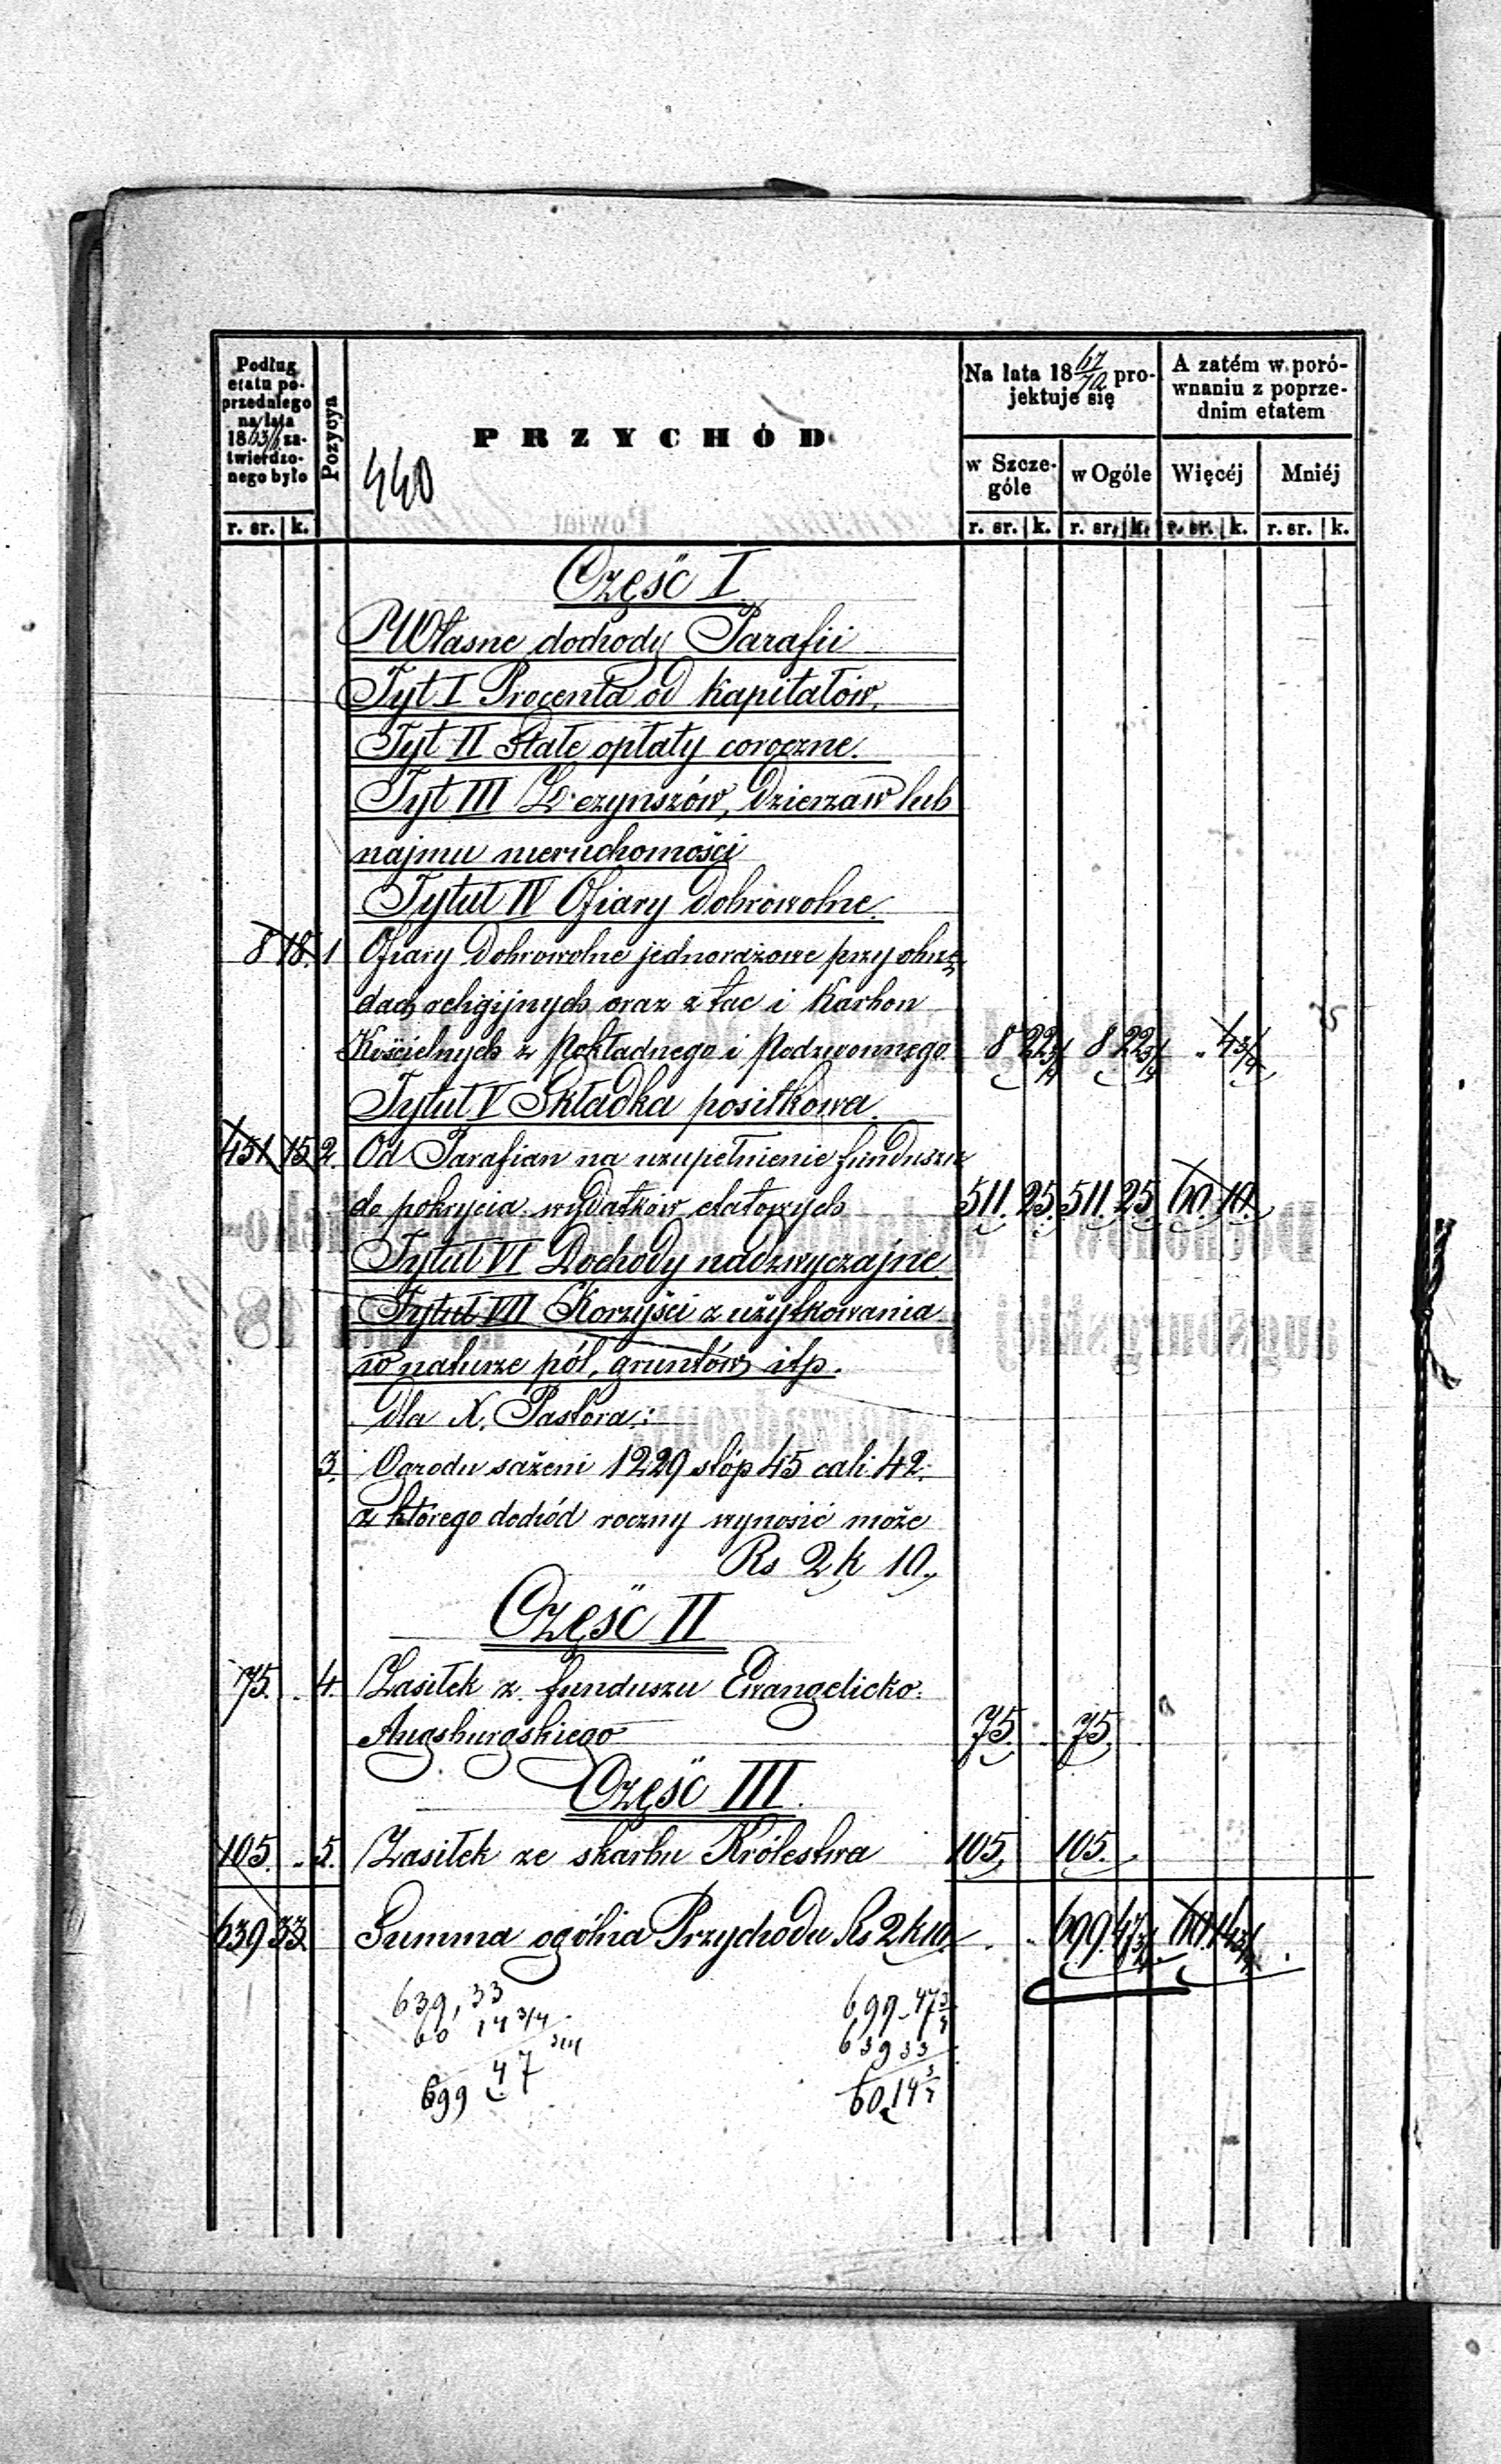 Podług
etatu po-
przedniego
na lata
1863/6 za-
twierdzo-
nego było
Pozycya
PRZYCHÓD
440
Na lata 18 67/70 pro-
jektuje się
A zatém w poró-
wnaniu z poprze-
dnim etatem
w Szcze-
góle
w Ogóle
Więcéj
Mniéj
r. sr. k.
r. sr. k. r. sr. k. r. sr. k. r. sr. k.
Część I
Własne dochody Parafii
Tyt I Procenta od kapitałów.
Tyt II Stałe opłaty coroczne.
Tyt III Z czynszów, dzierżaw lub
najmu nieruchomości
Tytuł IV Ofiary dobrowolne.
8 18. 1 Ofiary dobrowolne jednorazowe przy obrzę
dach religijnych oraz z tac i karbon
Kościelnych z pokładnego i podzwonnego 8 22 3/4 8 22 3/4 . 4 3/4
Tytuł V Składka posiłkowa.
451 15 2. Od Parafian na uzupełnienie funduszu
do pokrycia wydatków etatowych 511. 25. 511. 25 60. 10.
Tytuł VI Dochody nadzwyczajne
Tytuł VII Korzyści z użytkowania
w naturze pól, gruntów itp.
dla X. Pastora:
3. Ogrodu sażeni 1229 stóp 45 cali 42.
z którego dochód roczny wynosić może
Rs 2 k 10.
Część II
75. . 4. Zasiłek z funduszu Ewangelicko-
Augsburgskiego 75. . 75.
Część III.
105. . 5. Zasiłek ze skarbu Królestwa 105. 105. .
639 33 Summa ogólna Przychodu Rs 2 k 10. . . 699. 47 3/4 60. 14 3/4 .
639, 33
60 14 3/4
699 47 3/4
699. 47 3/4
639 33
60. 14 3/4